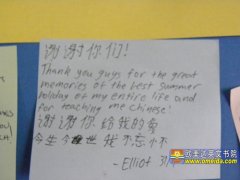 谢谢你们!
Thank you guys for the great
memories of the best summer
holiday of my entire life and
for teaching me Chinese!
谢谢你给我的爱
今生今世我不忘怀
-Elliot 31